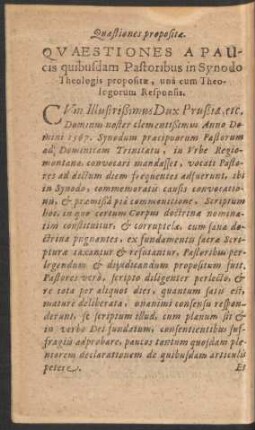 Quæstiones propositæ.
QVAESTIONES A PAU-
cis quibusdam Pastoribus in Synodo
Theologis propositæ, unà cum Theo-
logorum Responsis.
CVm Illustrissimus Dux Prussiæ, etc.
Dominus noster clementissimus Anno Do-
mini 1567. Synodum præcipuorum Pastorum
ad Dominicam Trinitatis, in Vrbe Regio-
montano convocari mandasset, vocati Pasto-
res ad dictum diem frequentes adfuerunt, ibi
in Synodo, commemoratis causis convocatio-
nis, & præmissâ piâ commonitione, Scriptum
hoc, in quo certum Corpus doctrinæ nomina-
tim constituitur, & corruptelæ, cum sana do-
ctrina pugnantes, ex fundamentis sacræ Scri-
ptura taxantur & refutantur, Pastoribus per-
legendum & dijudicandum propositum fuit,
Pastores verò, scripto diligenter perlecto, &
re tota per aliquot dies, quantum satis est,
mature deliberata, unanimi consensu respon-
derunt, se scriptum illud, cum planum sit &
in verbo Dei fundatum, consentientibus suf-
fragiis adprobare, paucos tantum quosdam ple-
niorem declarationem de quibusdam articulis
petere.
Et